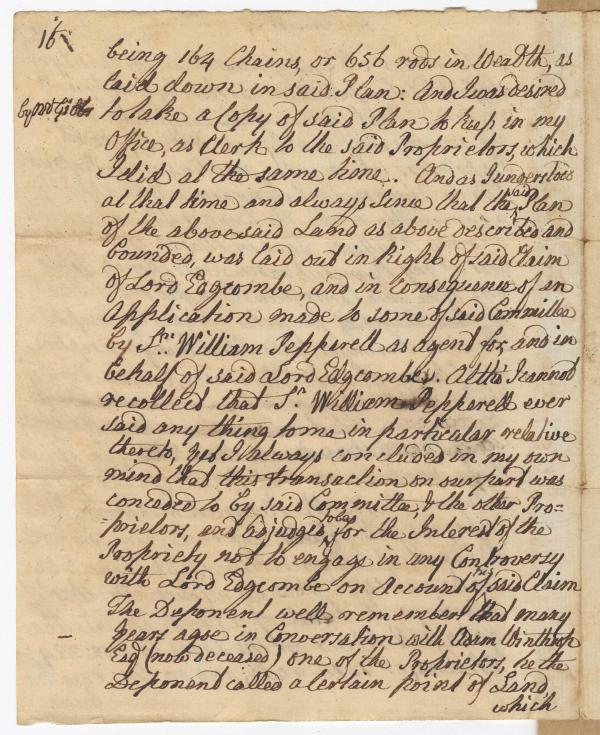 16
being 164 Chains, or 656 rods in Weadth, as
laid down in said Plan: And I was desired
by Mr
to take a Copy of said Plan to keep in my
Office, as Clerk to the said Proprietors, which
I did at the same time. And as I understood
at that time and always since that the said Plan
of the above said Land as above described and
bounded, was laid out in Right of said Claim
of Lord Edgcombe, and in consequence of an
Application made to some of said Committee
by Sr. William Pepperell as agent for, and in
behalf of said Lord Edgcombe. Altho' I cannot
recollect that Sr. William Pepperell ever
said any thing to me in particular relative
thereto, yet I always concluded in my own
mind that this transaction on our part was
conceded to by said Committee, & the other Pro=
=prietors, and adjudged to be for the Interest of the
Propriety not to engage in any Controversy
with Lord Edgcombe on Account of his said Claim
The Deponent well remember that many
years agoe in Conversation with Adam Winthrop
Esqr (now deceased) one of the Proprietors, he the
Deponent called a Certain point of Land,
which